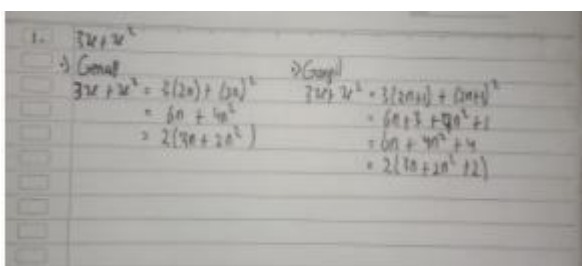 1. 3x + x²
•) Genap
3x + x² = 3(2n) + (2n)²
= 6n + 4n²
= 2(3n + 2n²)
•) Ganjil
3x + x² = 3(2n+1) + (2n+1)²
= 6n + 3 + 4n² + 1
= 6n + 4n² + 4
= 2(3n + 2n² + 2)